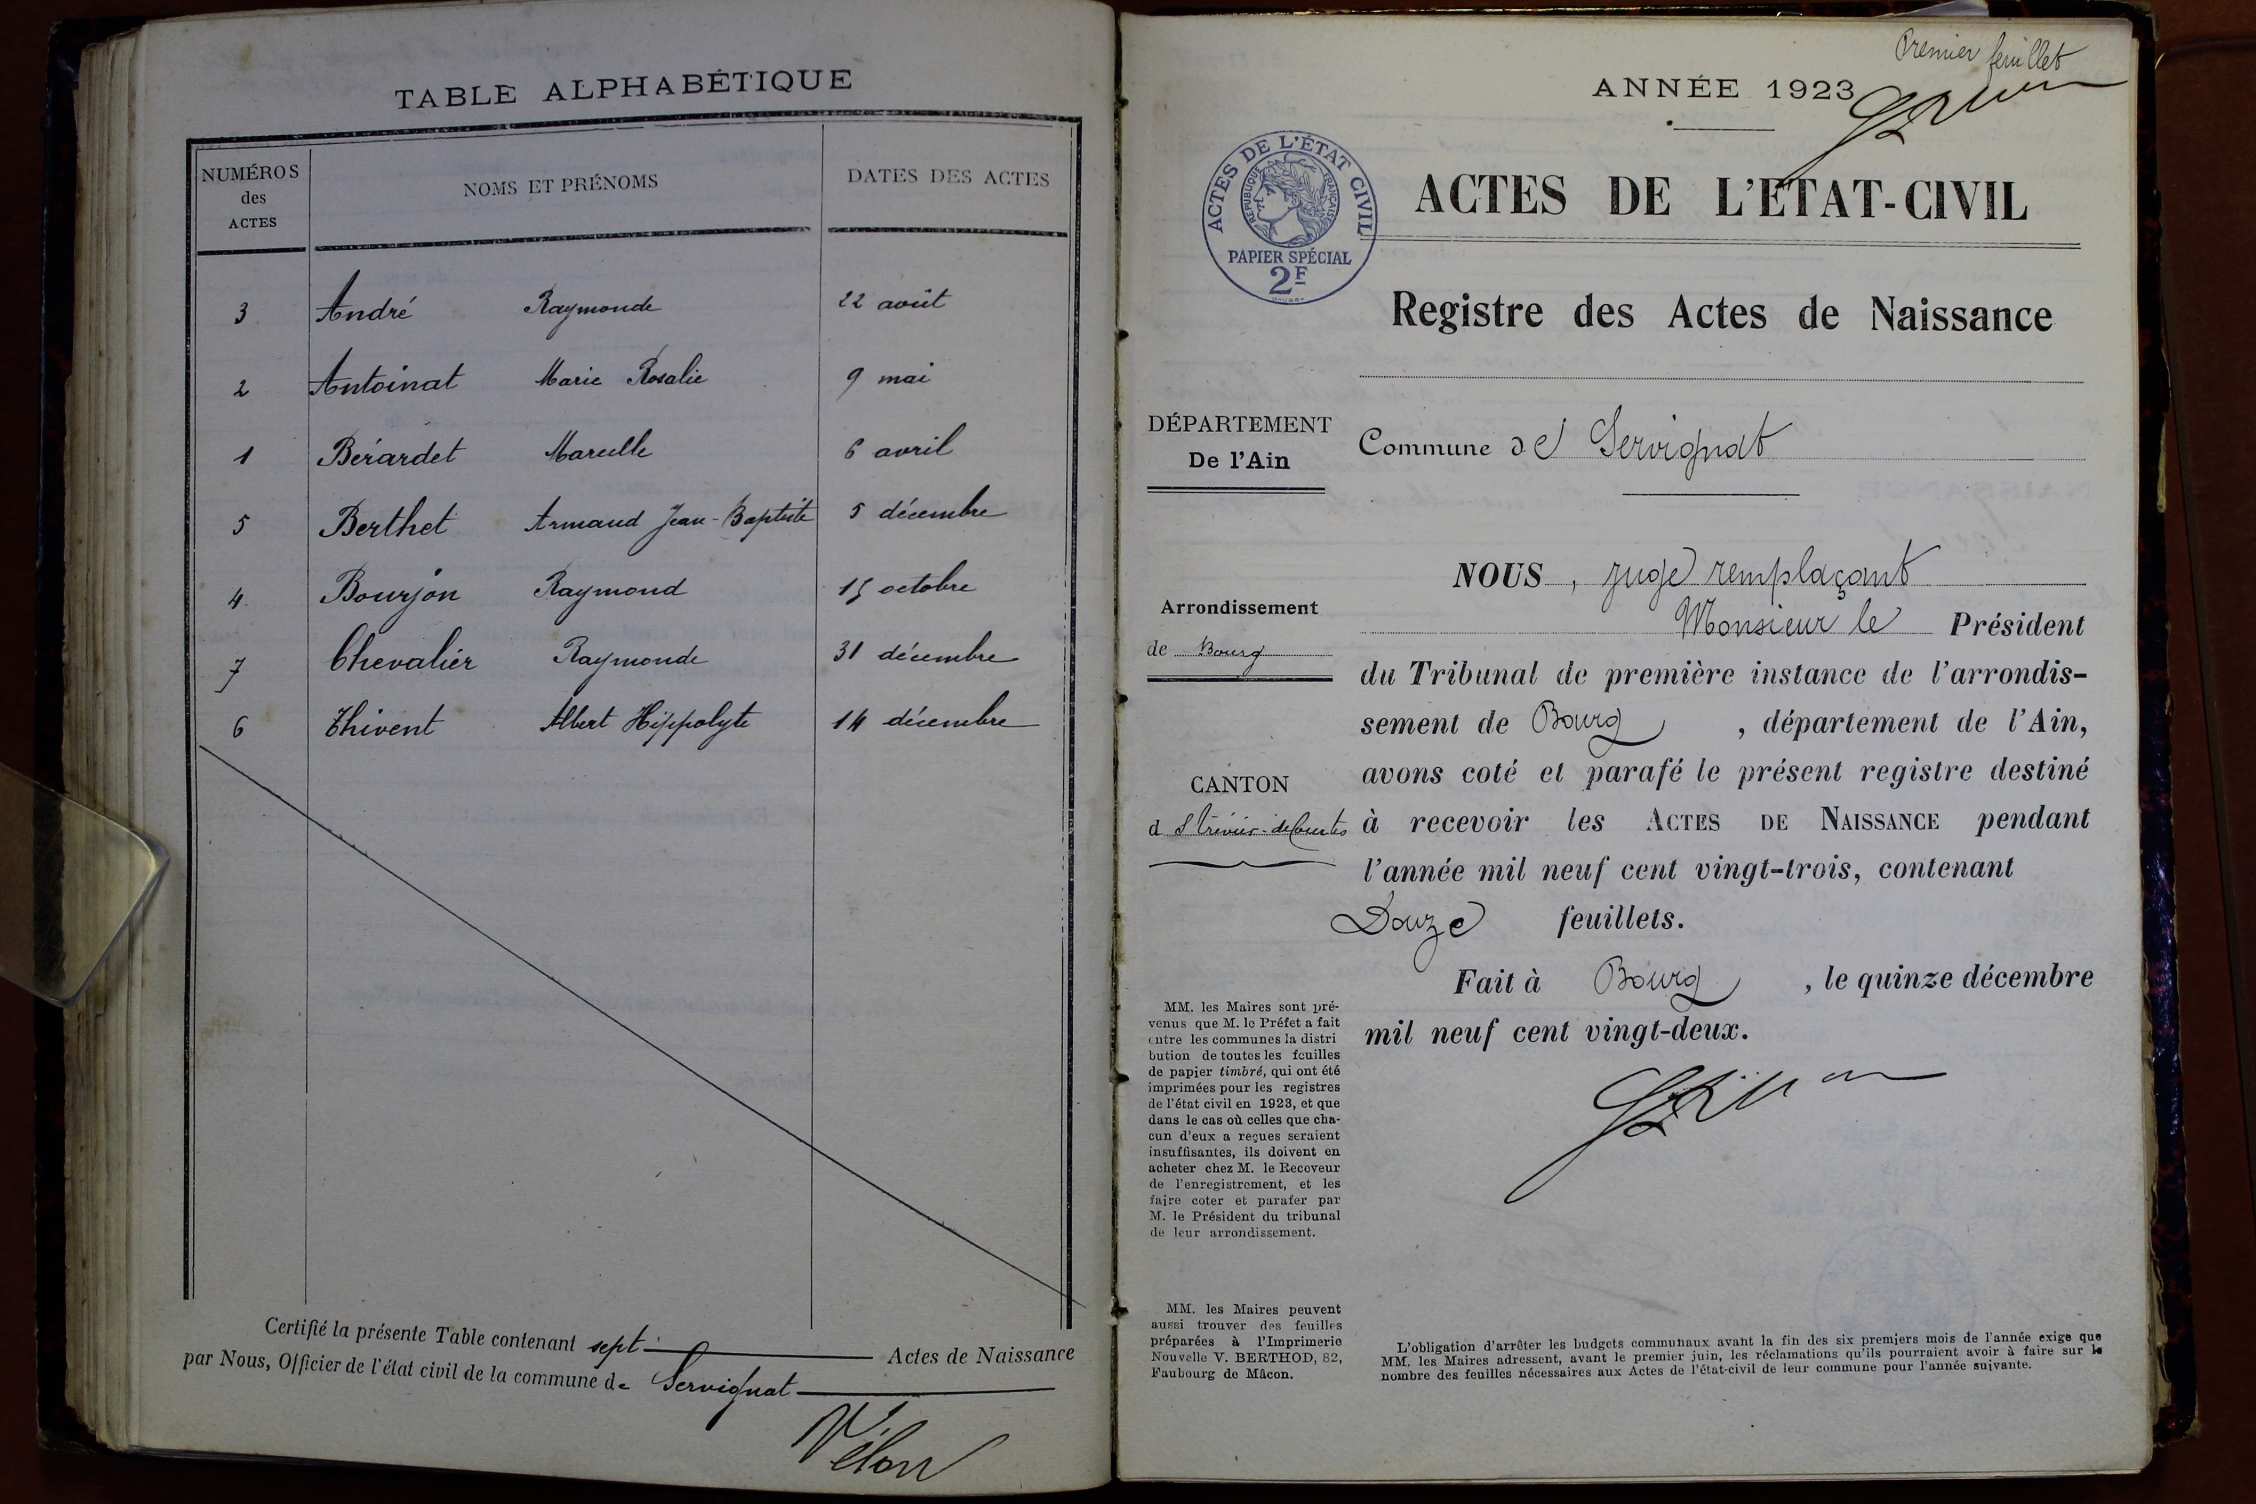 TABLE ALPHABÉTIQUE
NUMÉROS
des
ACTES
NOMS ET PRÉNOMS
DATES DES ACTES
3 André Raymonde 22 août
2 Antoinat Marie Rosalie 9 mai
1 Bérardet Marcelle 6 avril
5 Berthet Armand Jean-Baptiste 5 décembre
4 Bourjon Raymond 15 octobre
7 Chevalier Raymonde 31 décembre
6 Thivent Albert Hippolyte 14 décembre
Certifié la présente Table contenant sept Actes de Naissance
par Nous, Officier de l'état civil de la commune de Servignat
Premier feuillet
ANNÉE 1923
ACTES DE L'ÉTAT CIVIL
RÉPUBLIQUE FRANÇAISE
PAPIER SPÉCIAL
2F
ACTES DE L'ETAT-CIVIL
Registre des Actes de Naissance
DÉPARTEMENT
De l'Ain
Commune de Servignat
Arrondissement
de Bourg
CANTON
d St Trivier-de Courtes
NOUS, juge remplaçant
Monsieur le Président
du Tribunal de première instance de l'arrondis-
sement de Bourg, département de l'Ain,
avons coté et parafé le présent registre destiné
à recevoir les ACTES DE NAISSANCE pendant
l'année mil neuf cent vingt-trois, contenant
Douze feuillets.
Fait à Bourg, le quinze décembre
mil neuf cent vingt-deux.
MM. les Maires sont pré-
venus que M. le Préfet a fait
entre les communes la distri
bution de toutes les feuilles
de papier timbré, qui ont été
imprimées pour les registres
de l'état civil en 1923, et que
dans le cas où celles que cha-
cun d'eux a reçues seraient
insuffisantes, ils doivent en
acheter chez M. le Receveur
de l'enregistrement, et les
faire coter et parafer par
M. le Président du tribunal
de leur arrondissement.
MM. les Maires peuvent
aussi trouver des feuilles
préparées à l'Imprimerie
Nouvelle V. BERTHOD, 82,
Faubourg de Mâcon.
L'obligation d'arrêter les budgets communaux avant la fin des six premiers mois de l'année exige que
MM. les Maires adressent, avant le premier juin, les réclamations qu'ils pourraient avoir à faire sur le
nombre des feuilles nécessaires aux Actes de l'état-civil de leur commune pour l'année suivante.